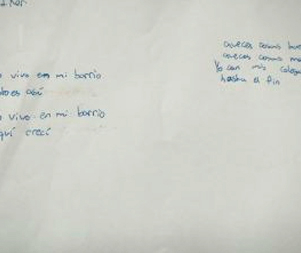 vivo en mi barrio
así
vivo en mi barrio
quí crecí
aveces somos bue
aveces somos ma
Yo con mis colega
hasta el fin